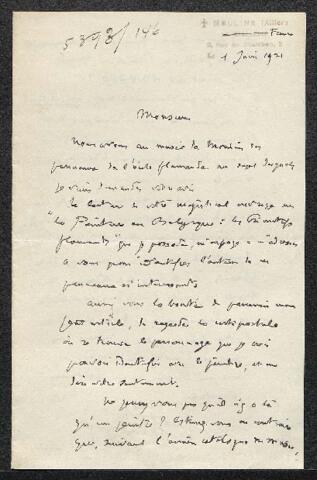 5398/146
MOULINS (Allier)
1 Juin 1921
Monsieur
Nous avons au musée de Moulins des
panneaux de l'école flamande au sujet desquels
je viens demander votre avis.
La lecture de votre magistral ouvrage sur
"La Peinture en Belgique : les Primitifs
flamands" que je possède, m'engage à m'adresser
à vous pour identifier l'auteur de ces
panneaux si intéressants
Aurez vous la bonté de parcourir mon
petit article, de regarder les cartes postales
où se trouve le personnage que je crois
pouvoir identifier avec le peintre, et me
dire votre sentiment.
Ne pensez vous pas qu'il n'y a là
qu'un peintre ? Estimez vous au contraire
que, suivant l'ancien catalogue du Musée,